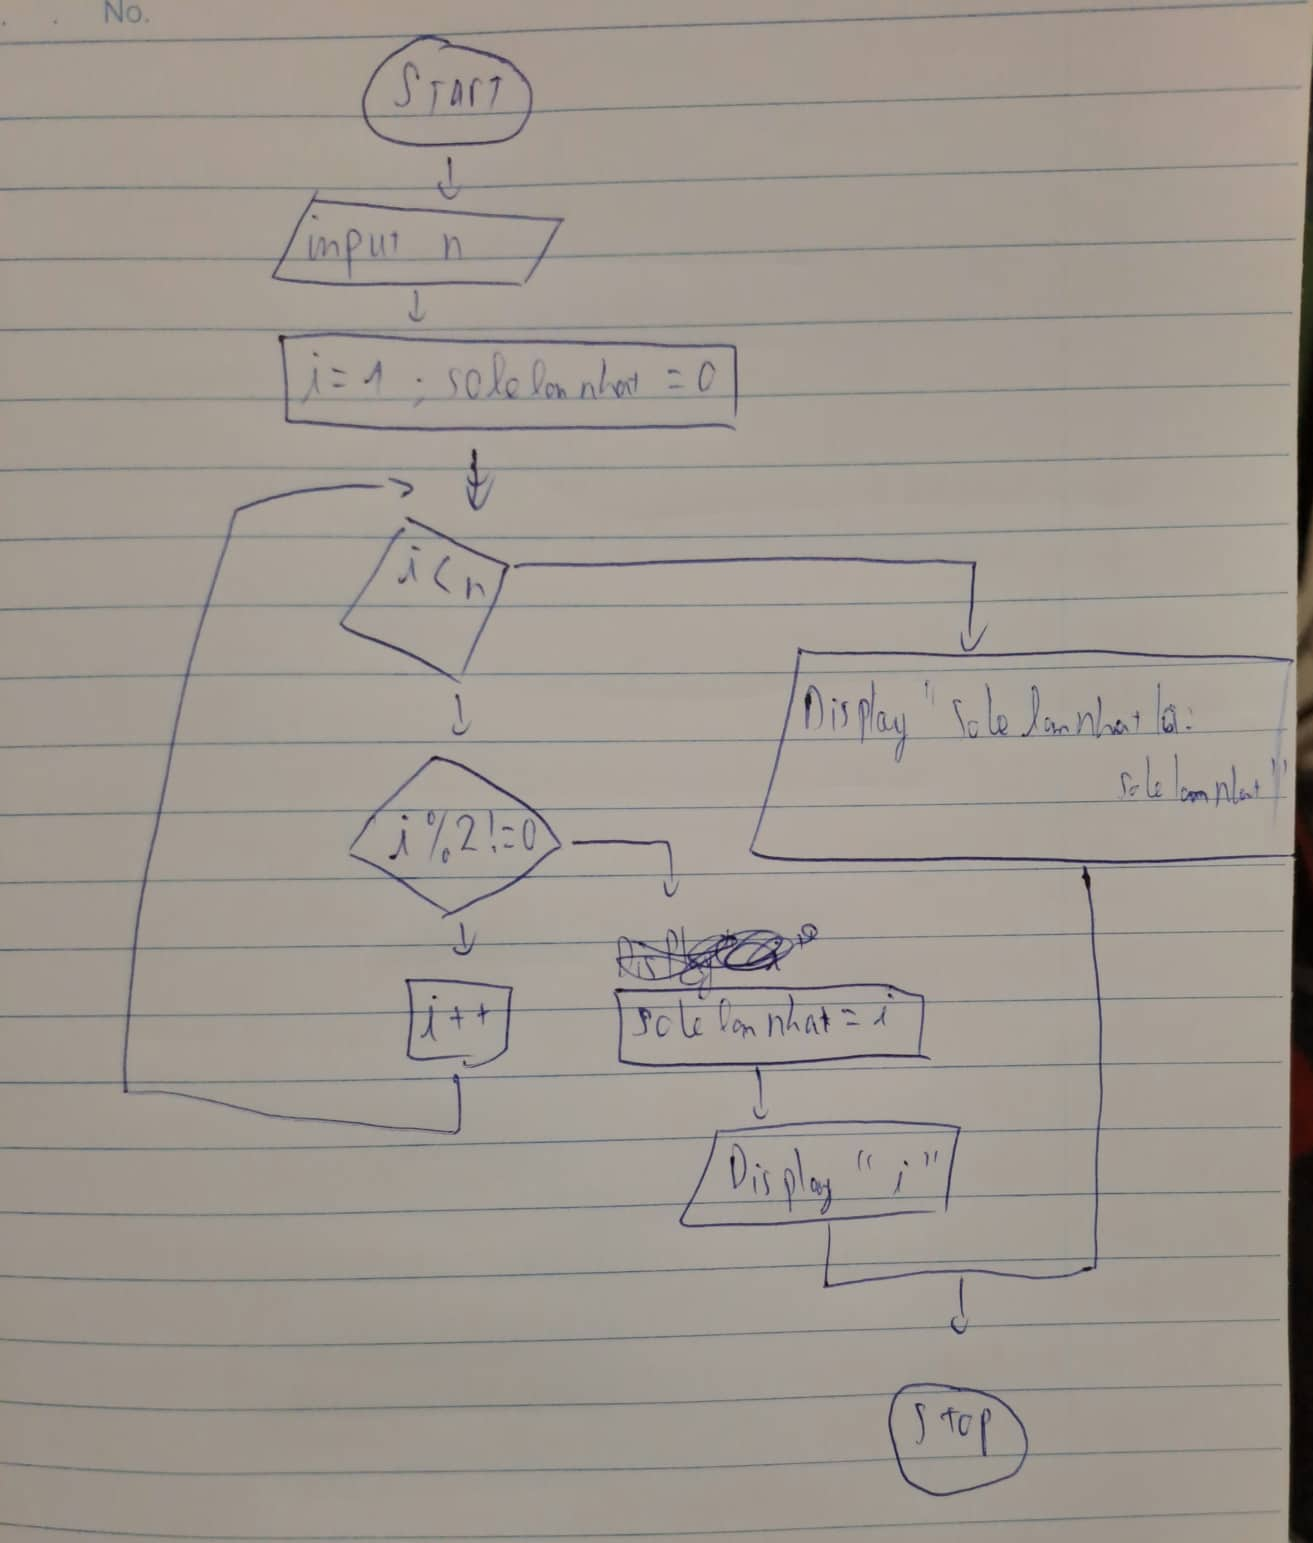 No.
START
input n
i=1 ; solelonnhat = 0
i<n
Display "sole lonnhat là:
sole lonnhat"
i%2!=0
i++
sole lonnhat = i
Display "i"
Stop